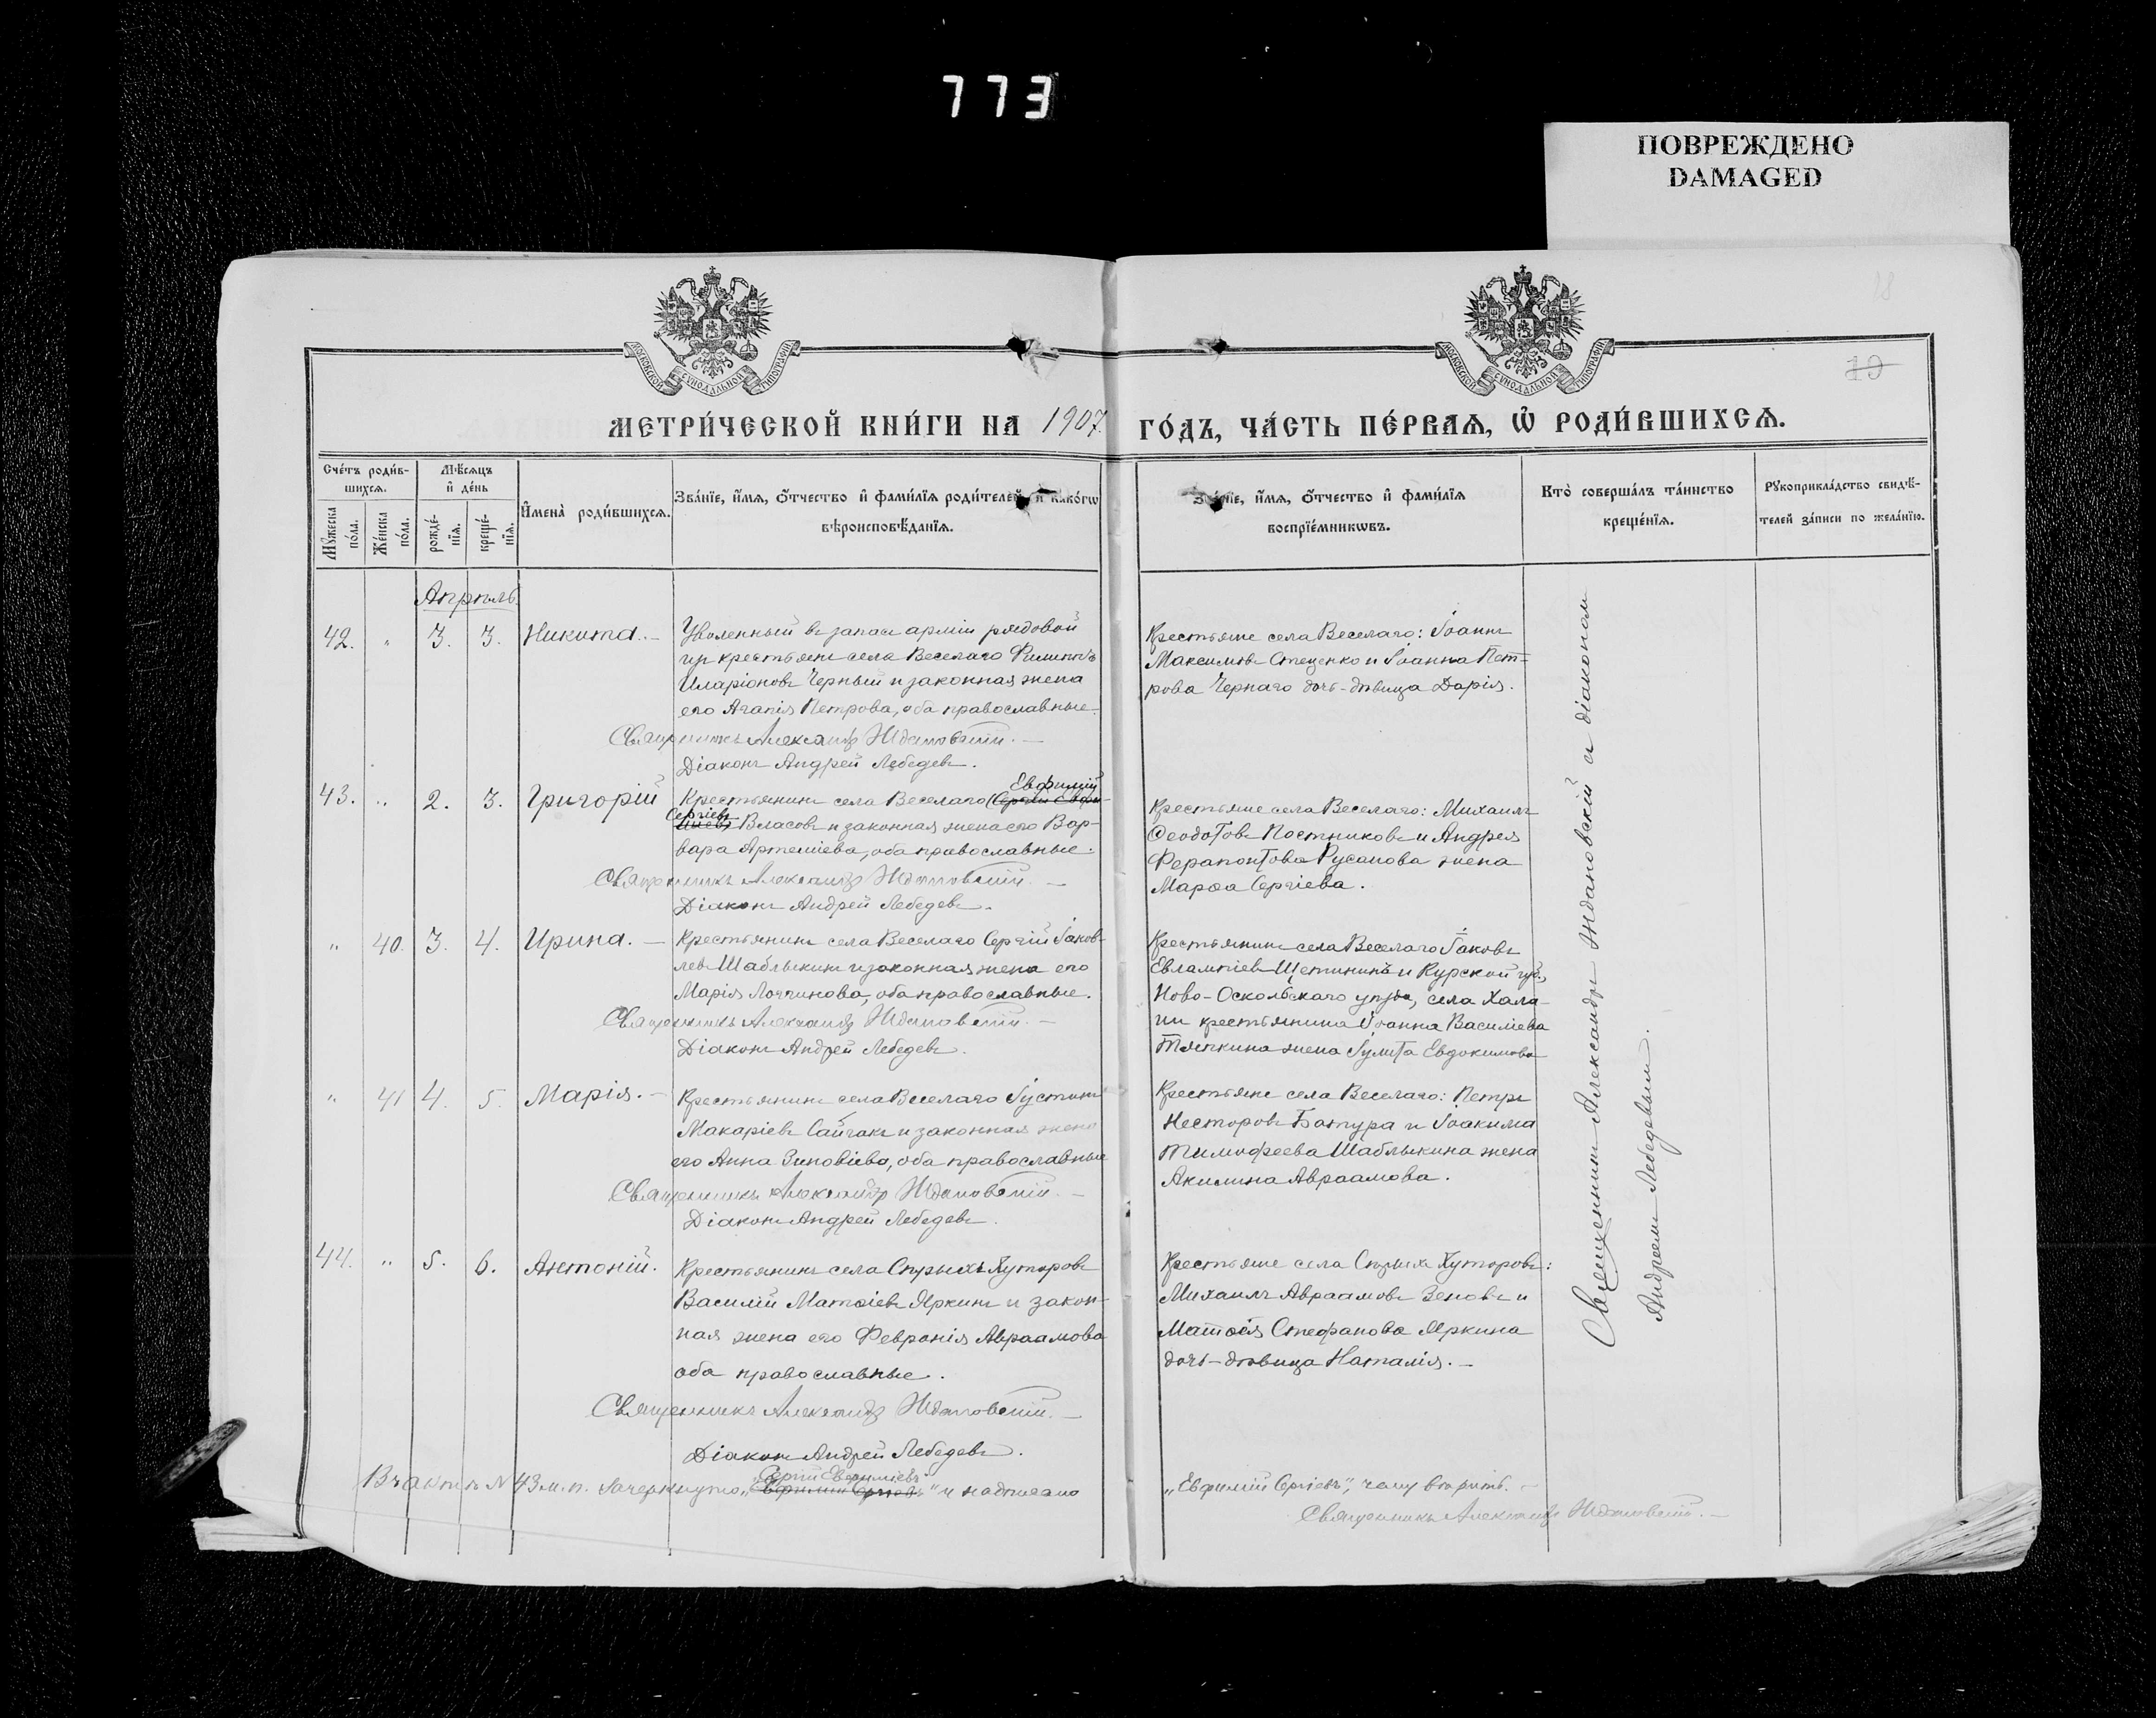 773
ПОВРЕЖДЕНО
DAMAGED
18
19
МОСКОВСКОЙ СѴНОДАЛЬНОЙ ТИПОГРАФІИ
МОСКОВСКОЙ СѴНОДАЛЬНОЙ ТИПОГРАФІИ
МЕТРИ́ЧЕСКОЙ КНИ́ГИ НА 1907. ГО́ДЪ, ЧА́СТЬ ПЕ́РВАѦ, Ѡ҆ РОДИ́ВШИХСѦ.
Сче́тъ роди́в-
шихсѧ.
Мѣ́сѧцъ
и҆ де́нь
Мꙋ́жеска
по́ла.
Же́нска
по́ла.
рожде́-
нїѧ.
креще́-
нїѧ.
И҆мена̀ роди́вшихсѧ.
Зва́нїе, и҆́мѧ, ѻ҆́тчество и҆ фами́лїѧ роди́телей и҆ како́гѡ
вѣроисповѣ́данїѧ.
Зва́нїе, и҆́мѧ, ѻ҆́тчество и҆ фами́лїѧ
воспрїе́мникѡвъ.
Кто̀ соверша́лъ та́инство
креще́нїѧ.
Рꙋкоприкла́дство свидѣ́-
телей за́писи по жела́нїю.
Апрѣль
42. " 3. 3. Никита. –
Уволенный въ запасъ арміи рядовой
изъ крестьянъ села Веселаго Филиппъ
Иларіоновъ Черный и законная жена
его Агапія Петрова, оба православные.
Священникъ Александръ Ждановскій. –
Діаконъ Андрей Лебедевъ.
Крестьяне села Веселаго: Іоаннъ
Максимовъ Стеценко и Іоанна Пет-
рова Чернаго дочь-дѣвица Дарія.
43. " 2. 3. Григорій
Евфимій
Крестьянинъ села Веселаго (Сергій Евфи-
Сергіевъ
міевъ) Власовъ и законная жена его Вар-
вара Артеміева, оба православные.
Священникъ Александръ Ждановскій. –
Діаконъ Андрей Лебедевъ.
Крестьяне села Веселаго: Михаилъ
Ѳеодотовъ Постниковъ и Андрея
Ферапонтова Русанова жена
Марѳа Сергіева.
" 40. 3. 4. Ирина. –
Крестьянинъ села Веселаго Сергій Іаков-
левъ Шаблыкинъ и законная жена его
Марія Логгинова, оба православные.
Священникъ Александръ Ждановскій. –
Діаконъ Андрей Лебедевъ.
Крестьянинъ села Веселаго Іаковъ
Евлампіевъ Щетининъ и Курской губ.,
Ново-Оскольскаго уѣзда, села Хала-
ни крестьянина Іоанна Василіева
Тяпкина жена Іулита Евдокимова
" 41 4. 5. Марія. –
Крестьянинъ села Веселаго Іустинъ
Макаріевъ Сайгакъ и законная жена
его Анна Зиновіева, оба православные
Священникъ Александръ Ждановскій. –
Діаконъ Андрей Лебедевъ.
Крестьяне села Веселаго: Петръ
Несторовъ Батура и Іоакима
Тимофеева Шаблыкина жена
Акилина Авраамова.
44. " 5. 6. Антоній.
Крестьянинъ села Сѣрыхъ Хуторовъ
Василій Матѳіевъ Яркинъ и закон-
ная жена его Февронія Авраамова
оба православные.
Священникъ Александръ Ждановскій. –
Діаконъ Андрей Лебедевъ.
Крестьяне села Сѣрыхъ Хуторовъ:
Михаилъ Авраамовъ Зеновъ и
Матѳія Стефанова Яркина
дочь-дѣвица Наталія. –
Священникъ Александръ Ждановскій съ діакономъ
Андреемъ Лебедевымъ.
"Сергій Евфиміевъ"
Въ актѣ № 43 м. п. зачеркнуто „Евфимій Сергіевъ" и надписано „Евфимій Сергіевъ", чему вѣрить. –
Священникъ Александръ Ждановскій. –